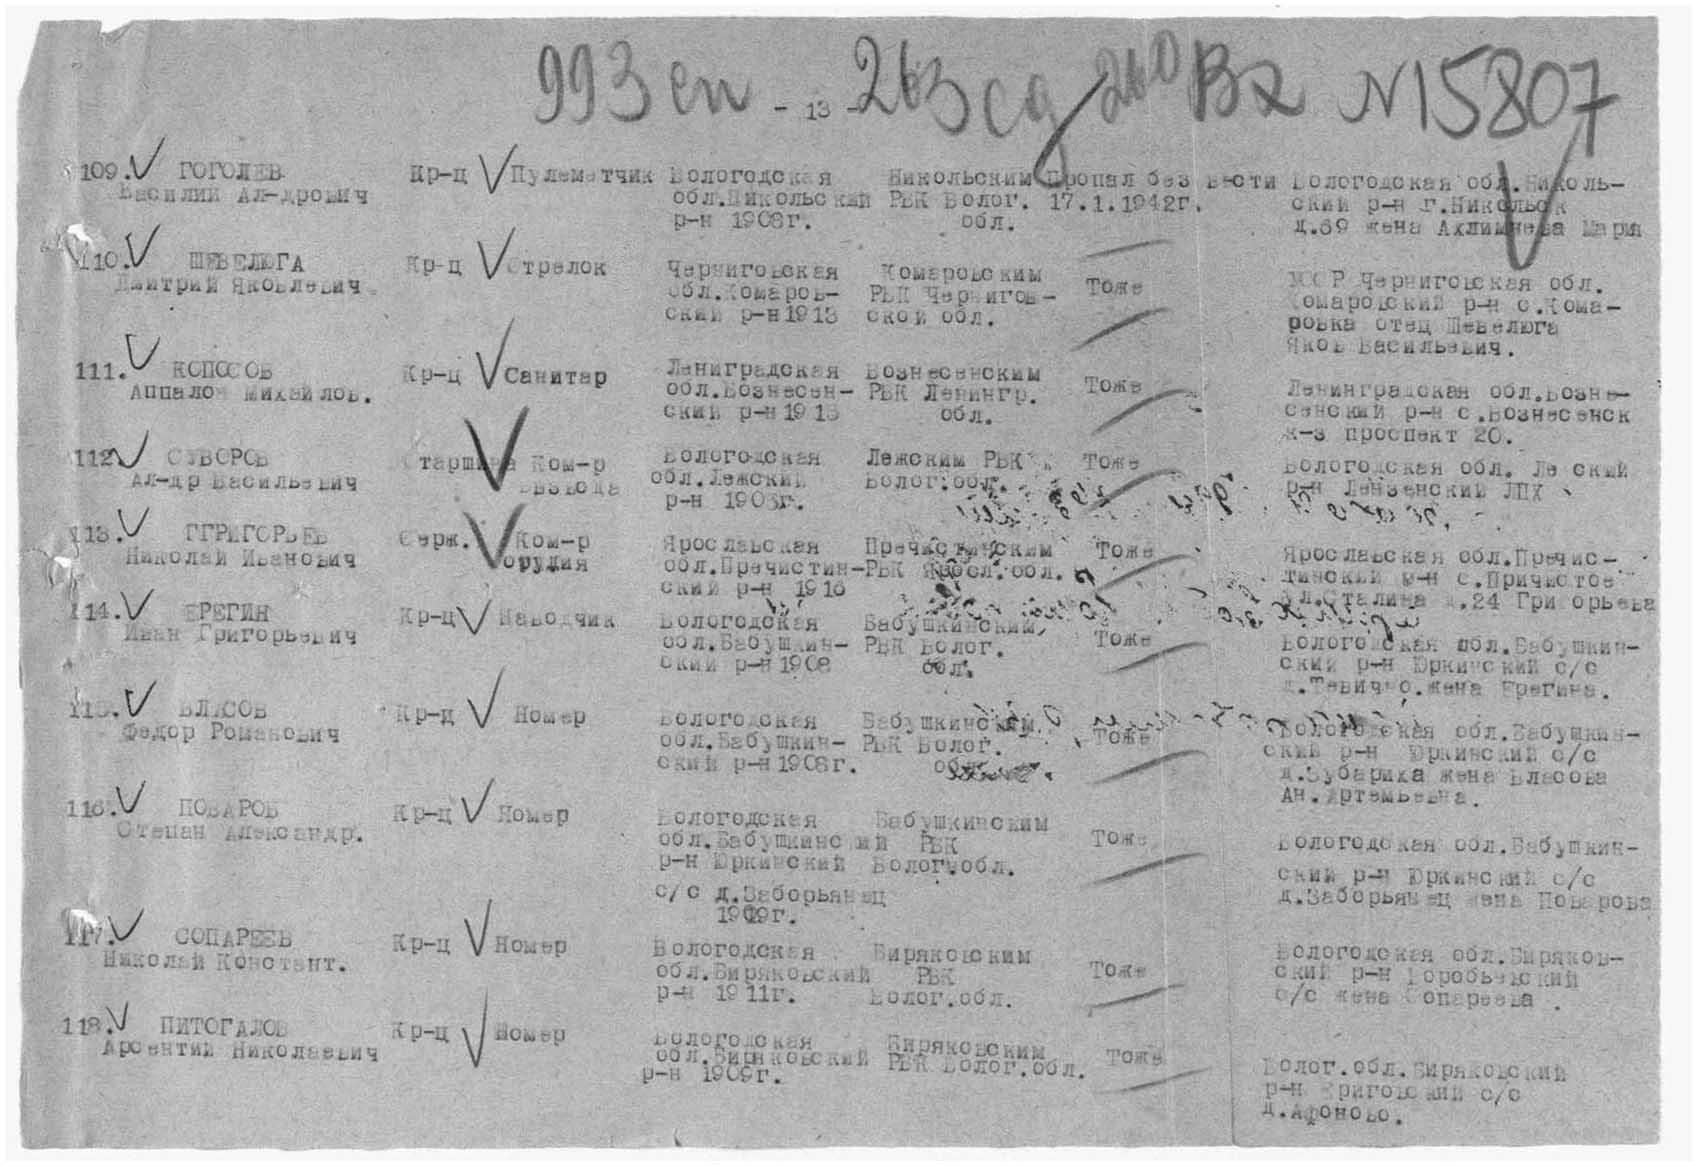 993 сп - 13 - 263 сд 260 Вх N 15807
109. ГОГОЛЕВ Кр-ц Пулеметчик Вологодская Никольским Пропал без вести Вологодская обл.Николь-
Василий Ал-дрович обл.Никольский РВК Волог. 17.1.1942г. ский р-н г.Никольск
р-н 1908г. обл. д.69 жена Ахлимнева Мария
110. ШЕВЕЛЮГА Кр-ц Стрелок Черниговская Комаровским Тоже УССР Черниговская обл.
Дмитрий Яковлевич обл.Комаров- РВК Чернигов- Комаровский р-н с.Кома-
ский р-н 1913 ской обл. ровка отец Шевелюга
Яков Васильевич.
111. КОПОСОВ Кр-ц Санитар Лениградская Вознесенским Тоже Ленинградская обл.Возне-
Аппалон Михайлов. обл.Вознесен- РВК Ленингр. сенский р-н с.Вознесенск
ский р-н 1913 обл. к-з проспект 20.
112. СУВОРОВ Старшина Ком-р Вологодская Лежским РВК Тоже Вологодская обл. Ле ский
Ал-др Васильевич взвода обл.Лежский Волог.обл. р-н Лензенский ЛПХ
р-н 1903г.
113. ГГРИГОРЬЕВ Серж. Ком-р Ярославская Пречистинским Тоже Ярославская обл.Пречис-
Николай Иванович орудия обл.Пречистин- РВК Яросл.обл. тинский р-н с.Причистое
ский р-н 1916 ул.Сталина д.24 Григорьева
114. ЕРЕГИН Кр-ц Наводчик Вологодская Бабушкинским Тоже Вологодская обл.Бабушкин-
Иван Григорьевич обл.Бабушкин- РВК Волог. ский р-н Юркинский с/с
ский р-н 1908 обл. жена Ерегина.
115. ВЛАСОВ Кр-ц Номер Вологодская Бабушкинским Тоже Вологодская обл.Бабушкин-
Федор Романович обл.Бабушкин- РВК Волог. ский р-н Юркинский с/с
ский р-н 1908г. обл. д.Зубариха жена Власова
Ан.Артемьевна.
116. ПОВАРОВ Кр-ц Номер Вологодская Бабушкинским Тоже Вологодская обл.Бабушкин-
Степан Александр. обл.Бабушкинский РВК ский р-н Юркинский с/с
р-н Юркинский Волог.обл. д.Заборьянец жена Поварова
с/с д.Заборьянец
1909г.
117. СОПАРЕЕВ Кр-ц Номер Вологодская Биряковским Тоже Вологодская обл.Биряков-
Николай Констант. обл.Биряковский РВК ский р-н Воробьевский
р-н 1911г. Волог.обл. с/с жена Сопареева .
118. ПИТОГАЛОВ Кр-ц Номер Вологодская Биряковским Тоже Волог.обл.Биряковский
Арсентий Николаевич обл.Биряковский РВК Волог.обл. р-н с/с
р-н 1909г. д.Афоново.